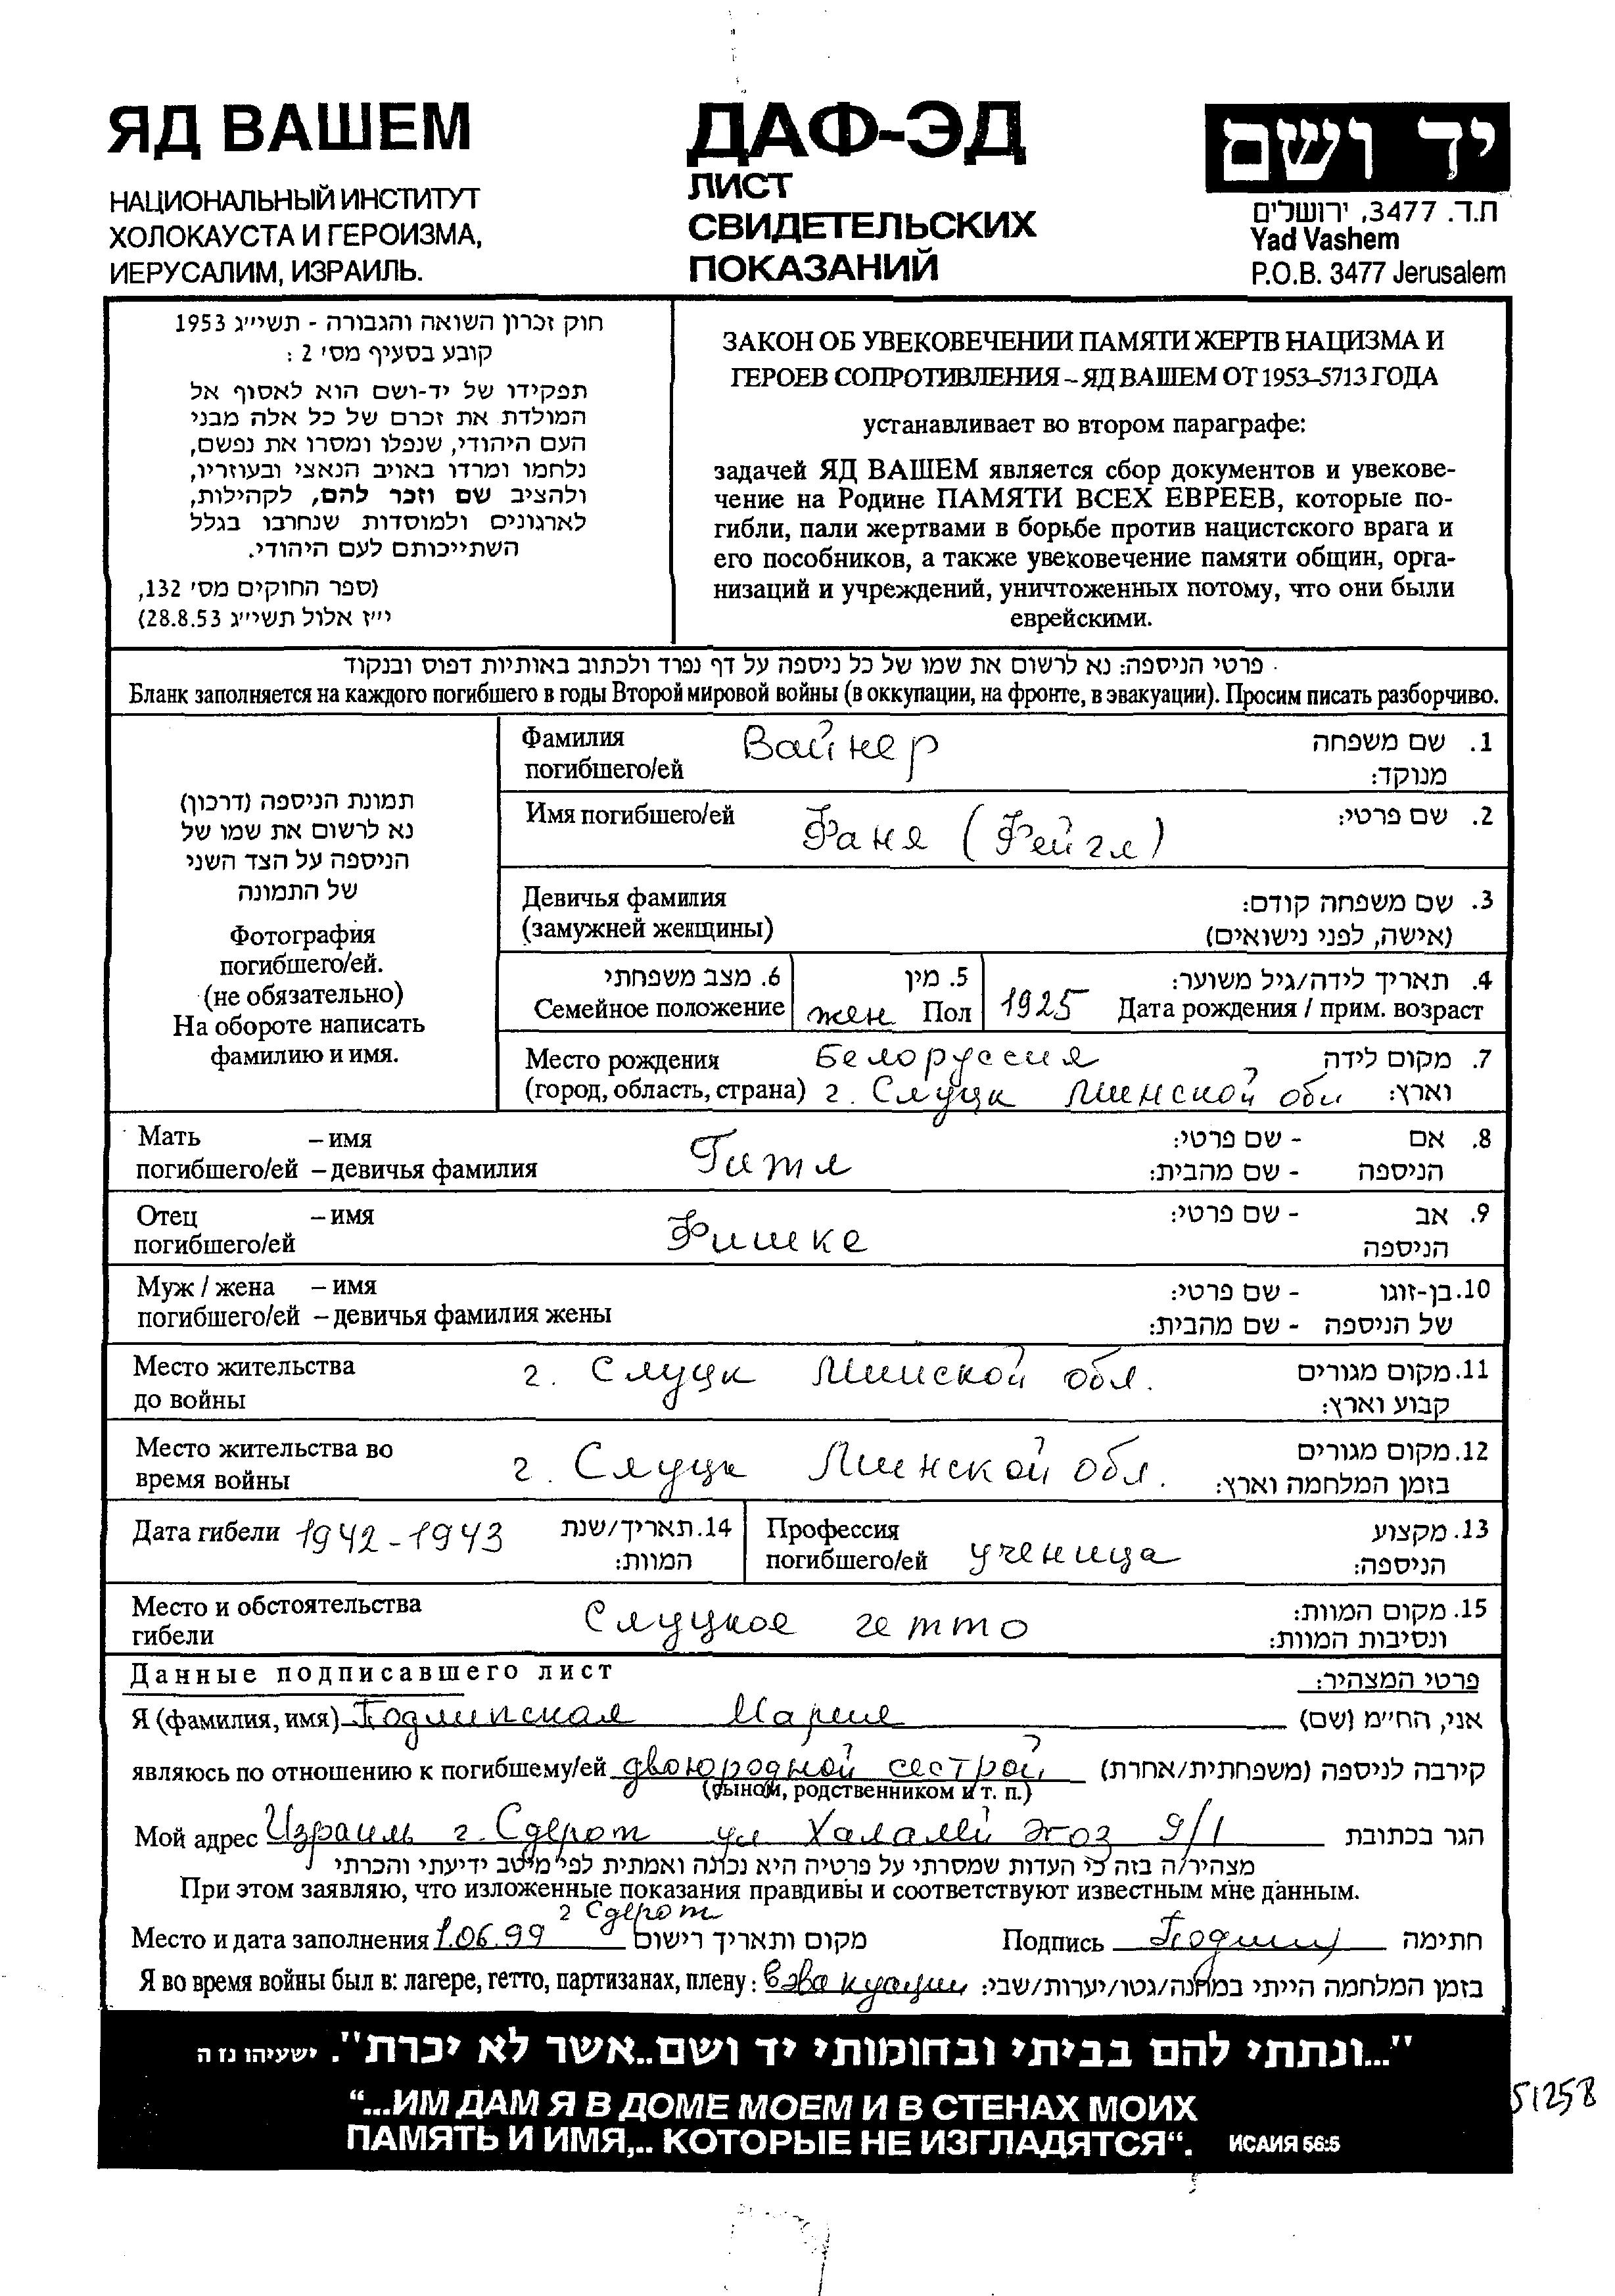 ЯД ВАШЕМ
НАЦИОНАЛЬНЫЙ ИНСТИТУТ
ХОЛОКАУСТА И ГЕРОИЗМА,
ИЕРУСАЛИМ, ИЗРАИЛЬ.
ДАФ-ЭД
ЛИСТ
СВИДЕТЕЛЬСКИХ
ПОКАЗАНИЙ
יד ושם
ת.ד. 3477, ירושלים
Yad Vashem
P.O.B. 3477 Jerusalem
חוק זכרון השואה והגבורה - תשי״ג 1953
קובע בסעיף מס׳ 2 :
תפקידו של יד-ושם הוא לאסוף אל
המולדת את זכרם של כל אלה מבני
העם היהודי, שנפלו ומסרו את נפשם,
נלחמו ומרדו באויב הנאצי ובעוזריו,
ולהציב שם וזכר להם, לקהילות,
לארגונים ולמוסדות שנחרבו בגלל
השתייכותם לעם היהודי.
(ספר החוקים מס׳ 132,
י״ז אלול תשי״ג 28.8.53)
ЗАКОН ОБ УВЕКОВЕЧЕНИИ ПАМЯТИ ЖЕРТВ НАЦИЗМА И
ГЕРОЕВ СОПРОТИВЛЕНИЯ – ЯД ВАШЕМ ОТ 1953–5713 ГОДА
устанавливает во втором параграфе:
задачей ЯД ВАШЕМ является сбор документов и увекове-
чение на Родине ПАМЯТИ ВСЕХ ЕВРЕЕВ, которые по-
гибли, пали жертвами в борьбе против нацистского врага и
его пособников, а также увековечение памяти общин, орга-
низаций и учреждений, уничтоженных потому, что они были
еврейскими.
פרטי הניספה: נא לרשום את שמו של כל ניספה על דף נפרד ולכתוב באותיות דפוס ובנקוד
Бланк заполняется на каждого погибшего в годы Второй мировой войны (в оккупации, на фронте, в эвакуации). Просим писать разборчиво.
תמונת הניספה (דרכון)
נא לרשום את שמו של
הניספה על הצד השני
של התמונה
Фотография
погибшего/ей.
(не обязательно)
На обороте написать
фамилию и имя.
Фамилия Вайнер 1. שם משפחה
погибшего/ей מנוקד:
Имя погибшего/ей Фаня (Фейгл) 2. שם פרטי:
Девичья фамилия 3. שם משפחה קודם:
(замужней женщины) (אישה, לפני נישואים)
6. מצב משפחתי 5. מין 4. תאריך לידה/גיל משוער:
Семейное положение жен Пол 1925 Дата рождения / прим. возраст
Место рождения Белоруссия 7. מקום לידה
(город, область, страна) г. Слуцк Минской обл וארץ:
Мать – имя Гитл 8. אם - שם פרטי:
погибшего/ей – девичья фамилия הניספה - שם מהבית:
Отец – имя Фишке 9. אב - שם פרטי:
погибшего/ей הניספה
Муж / жена – имя 10. בן-זוגו - שם פרטי:
погибшего/ей – девичья фамилия жены של הניספה - שם מהבית:
Место жительства г. Слуцк Минской обл. 11. מקום מגורים
до войны קבוע וארץ:
Место жительства во г. Слуцк Минской обл. 12. מקום מגורים
время войны בזמן המלחמה וארץ:
Дата гибели 1942-1943 14. תאריך/שנת
המוות:
Профессия ученица 13. מקצוע
погибшего/ей הניספה:
Место и обстоятельства Слуцкое гетто 15. מקום המוות:
гибели ונסיבות המוות:
Данные подписавшего лист פרטי המצהיר:
Я (фамилия, имя) Мария אני, הח״מ (שם)
являюсь по отношению к погибшему/ей двоюродной сестрой קירבה לניספה (משפחתית/אחרת)
(сыном, родственником и т. п.)
Мой адрес Израиль г. Сдерот ул 9/1 הגר בכתובת
מצהיר/ה בזה כי העדות שמסרתי על פרטיה היא נכונה ואמתית לפי מיטב ידיעתי והכרתי
При этом заявляю, что изложенные показания правдивы и соответствуют известным мне данным.
г Сдерот
Место и дата заполнения 1.06.99 מקום ותאריך רישום Подпись חתימה
Я во время войны был в: лагере, гетто, партизанах, плену: в эвакуации בזמן המלחמה הייתי במחנה/גטו/יערות/שבי:
"...ונתתי להם בביתי ובחומותי יד ושם..אשר לא יכרת". ישעיהו נז ה
“...ИМ ДАМ Я В ДОМЕ МОЕМ И В СТЕНАХ МОИХ
ПАМЯТЬ И ИМЯ,.. КОТОРЫЕ НЕ ИЗГЛАДЯТСЯ“. ИСАИЯ 56:5
51258